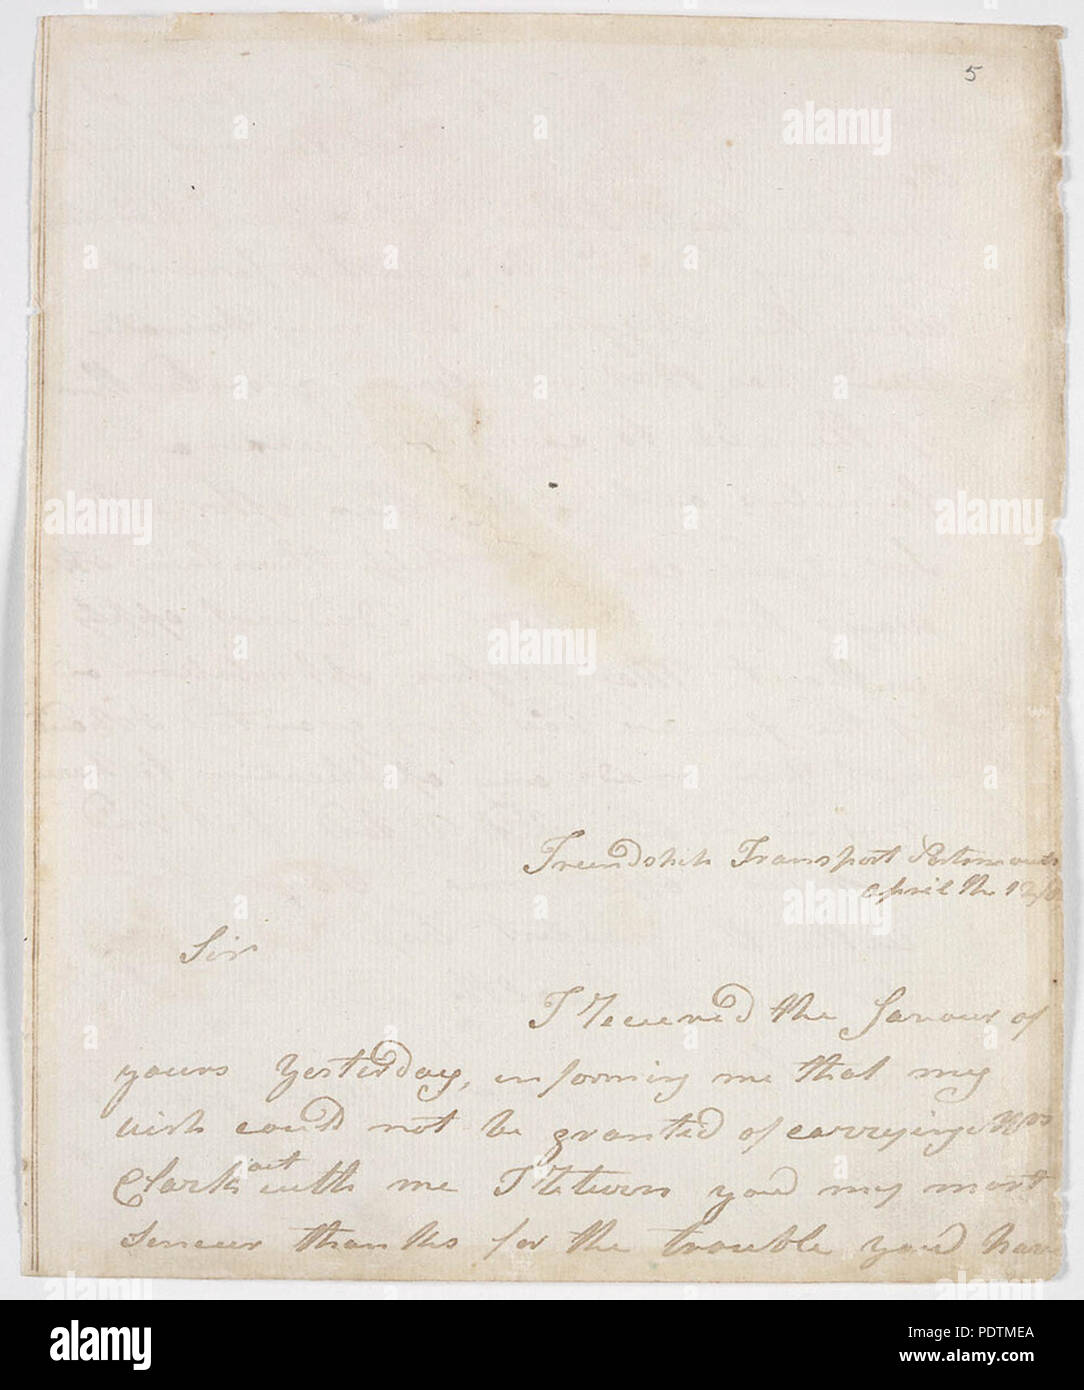 5
Freindship Transport Portsmouth
April the 12
Sir
I receeived the favour of
yours Yesterday, informing me that my
wish could not be granted of carrying Mrs
Clark out with me I return you my most
sinceur thanks for the trouble you have
alamy
Image ID: PDTMEA
www.alamy.com